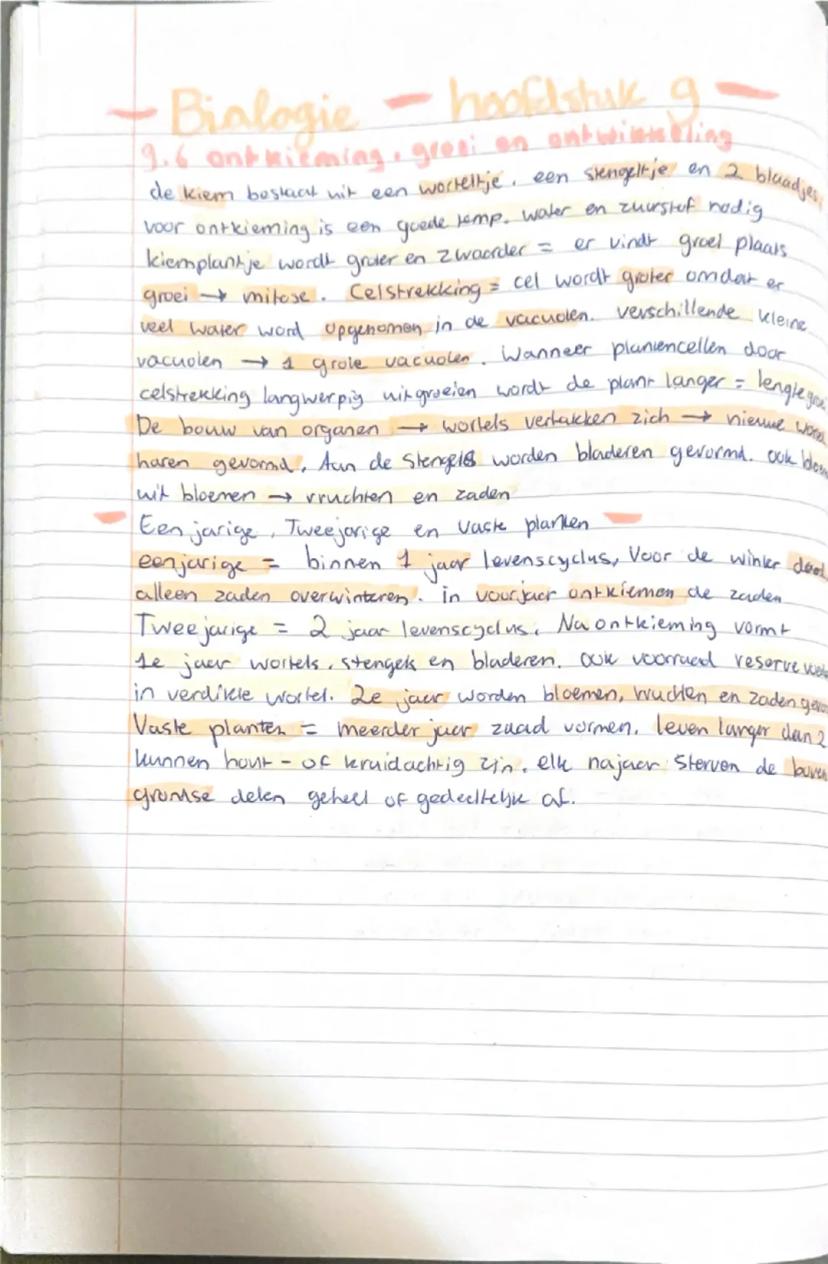 - Biologie - hoofdstuk 9 -
9.6 ontkieming, groei en ontwikkeling
de kiem bestaat uit een worteltje, een stengeltje en 2 blaadjes,
voor ontkieming is een goede temp. water en zuurstof nodig
kiemplantje wordt groter en zwaarder = er vindt groei plaats
groei → mitose. Celstrekking = cel wordt groter omdat er
veel water word opgenomen in de vacuolen. verschillende kleine
vacuolen → 1 grote vacuolen. Wanneer plantencellen door
celstrekking langwerpig uitgroeien wordt de plant langer = lengtegroei
De bouw van organen → wortels vertakken zich → nieuwe
haren gevormd. Aan de stengels worden bladeren gevormd. ook
uit bloemen → vruchten en zaden
- Een jarige, Tweejarige en vaste planten -
eenjarige = binnen 1 jaar levenscyclus, Voor de winter dood
alleen zaden overwinteren. in voorjaar ontkiemen de zaden
Tweejarige = 2 jaar levenscyclus. Na ontkieming vormt
1e jaar wortels, stengels en bladeren. ook voorraad reserve
in verdikte wortel. 2e jaar worden bloemen, vruchten en zaden
Vaste planten = meerder jaar zaad vormen. leven langer dan 2
kunnen hout - of kruidachtig zijn. elk najaar sterven de boven
grondse delen geheel of gedeeltelijk af.